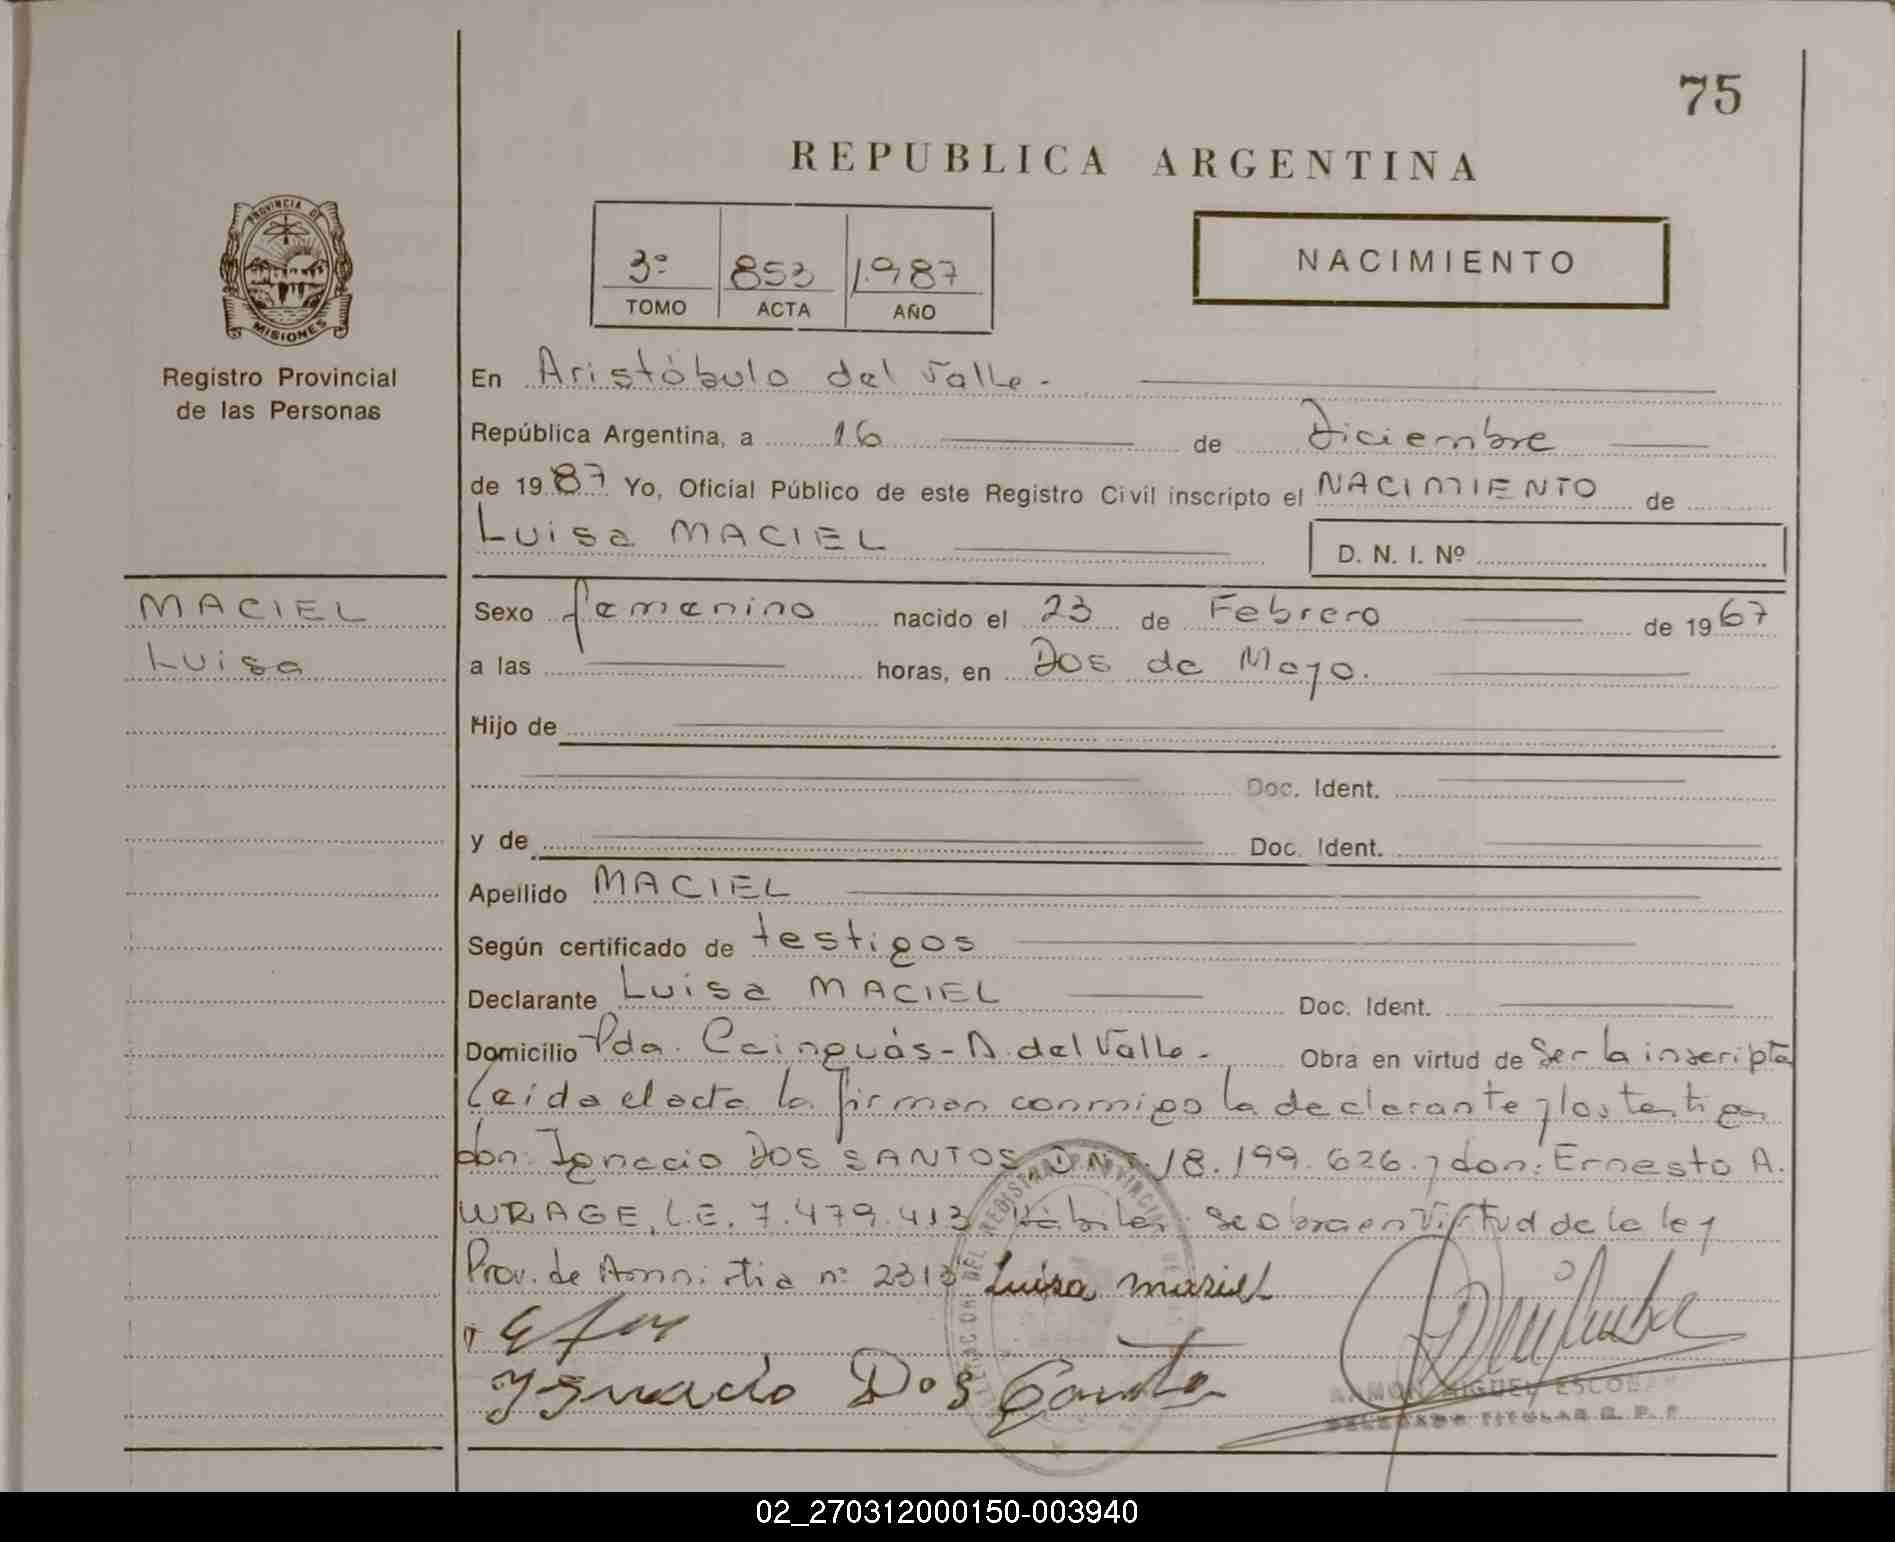 75
REPUBLICA ARGENTINA
PROVINCIA DE
MISIONES
Registro Provincial
de las Personas
3º 853 1.987
TOMO ACTA AÑO
NACIMIENTO
En Aristóbulo del Valle.-
República Argentina, a 16 de Diciembre
de 1987 Yo, Oficial Público de este Registro Civil inscripto el NACIMIENTO de
Luisa MACIEL D. N. I. Nº
MACIEL
Luisa
Sexo femenino nacido el 23 de Febrero de 1967
a las horas, en Dos de Mayo.
Hijo de
Doc. Ident.
y de Doc. Ident.
Apellido MACIEL
Según certificado de testigos
Declarante Luisa MACIEL Doc. Ident.
Domicilio Pda. Cainguás - A. del Valle.- Obra en virtud de Ser la inscripta
Leída el acta la firman conmigo la declarante y los testigos
don: Ignacio DOS SANTOS D.N.I. 18.199.626. y don: Ernesto A.
WRAGE, L.E. 7.479.413 Hábiles. Se obra en Virtud de la ley
Prov. de Amnistia nº 2313 Luisa Masiel
Ygnacio Dos Santo
RAMON MIGUEL ESCOBAR
DELEGADO TITULAR R. P. P.
02_270312000150-003940